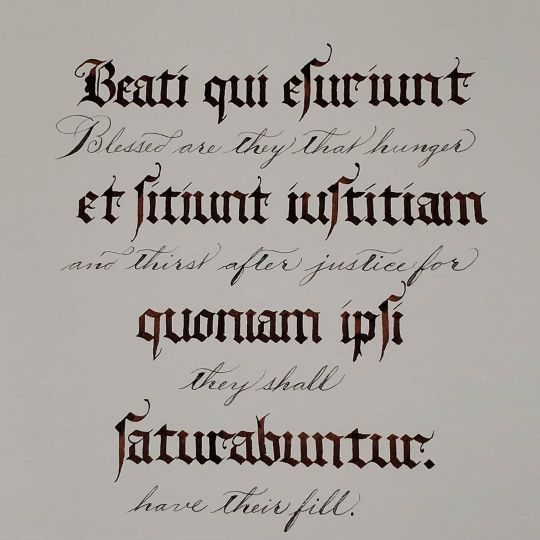 Beati qui eſuriunt
Blessed are they that hunger
et ſitiunt iuſtitiam
and thirst after justice for
quoniam ipſi
they shall
ſaturabuntur.
have their fill.